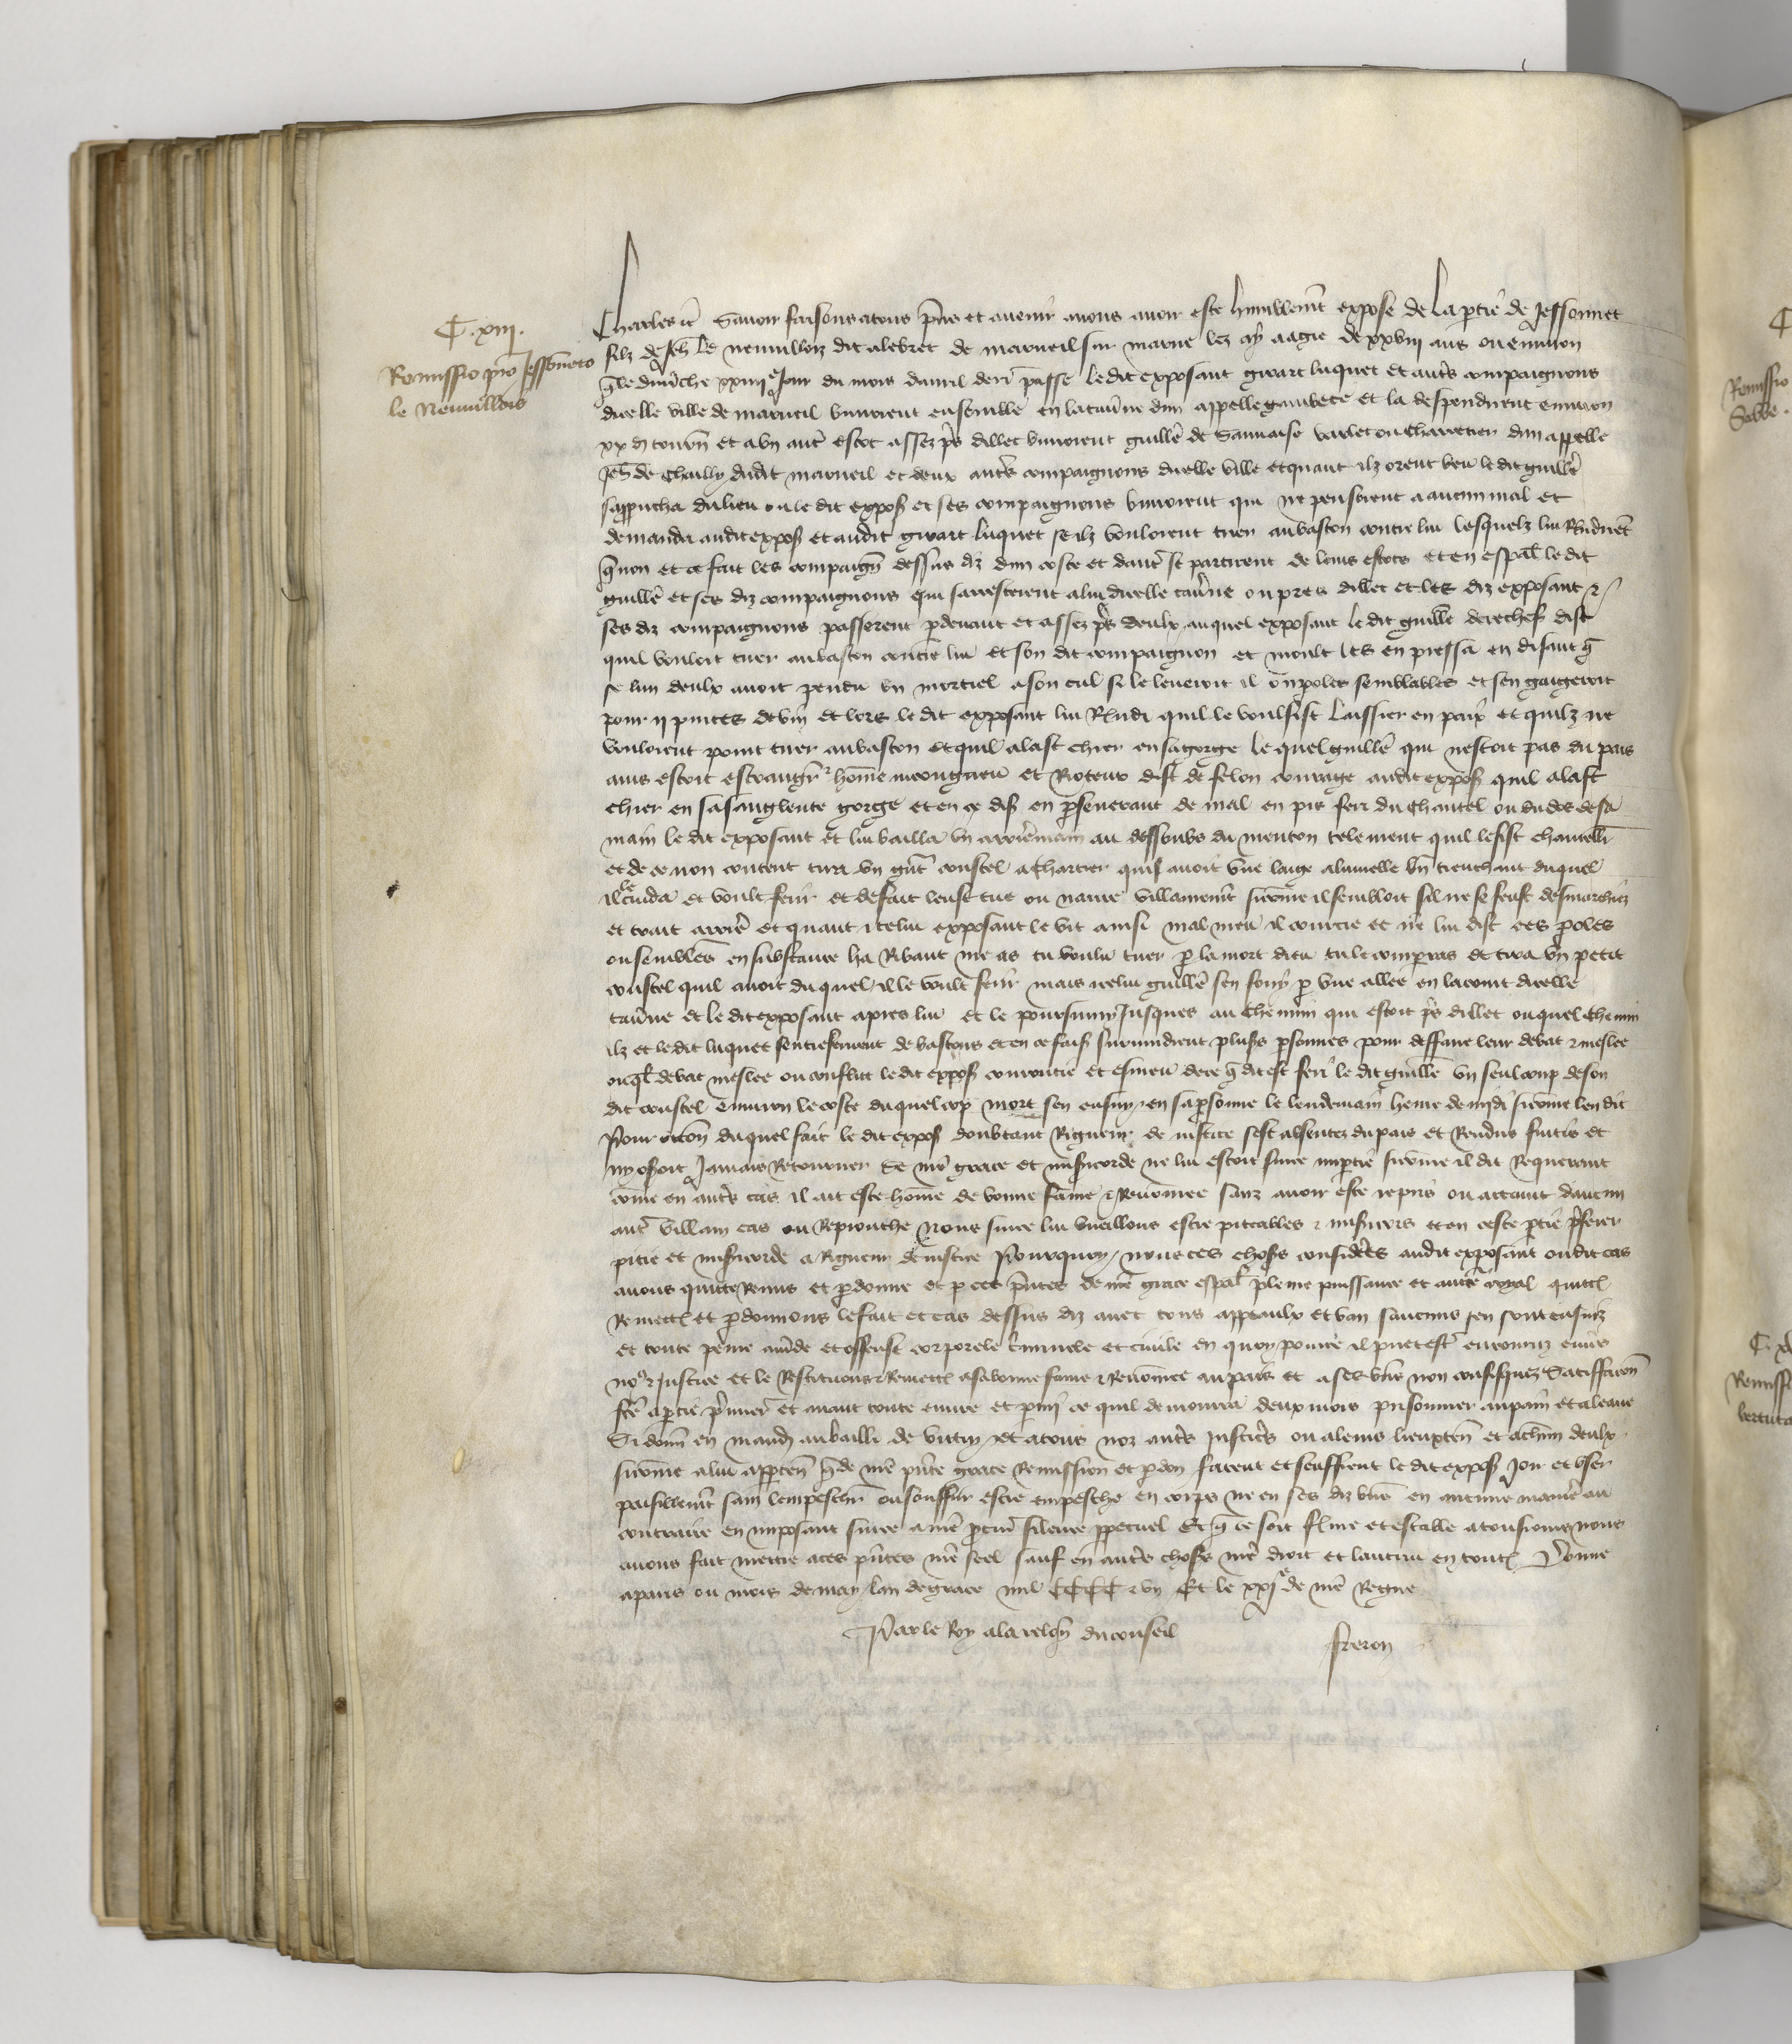 C. xiii.
Remissio pro Jessoneto
le Neuvillois
Charles etc Savoir faisons a tous p̃ns et avenir nous avoir este humblem̃t expose de la partie de Jessonnet
filz de Jeh̃ le neuvilloiz dit alebret de mareuil sur marne lez ay aagie de xxviii ans ou environ
q̃ le dim̃che xxiiii e Jour du mois davril deñ passe le dit exposant girart luquet et autr̃s compaignons
dicelle ville de mareuil burent ensemble en la tav̾ne dun appelle gauvete et la despendirent environ
xx d̾ tourñ et a un aut̾ escot assez p̾s dillec buvoient guille de Sannaise varlet ou charretier dun appelle
Jeh̃ de Chailly dudit mareuil et deux autr̃s compaignons dicelle ville et quant ilz orent beu le dit guille
sapproucha du lieu ou le dit expos̃ et ses compaignons buvoient qui ne pensoient a aucun mal et
demanda audit expos̃ et audit girart luquet se ilz vouloient tirer au baston contre lui lesquelz lui Rñdirẽt
q̃ non et ce fait les compaigñ dessus diz dun coste et daut̾ se partirent de leurs escots et en esp̃al le dit
guille et ses diz compaignons qui sarresterent a luis dicelle tav̾ne ou pres dillec et les diz exposant et
ses diz compaignons passerent p̱ devant et assez p̾s deulx auquel exposant le dit guille derechef dist
quil vouloit tirer au baston contre lui et son dit compaignon et moult les en pressa en disant q̃
se lun deulx avoit pendu un mortiel a son cul si le leveroit il ou paroles semblables et sen gaigeroit
pour ii pintes de vin et lors le dit exposant lui Rñdi quil le voulsist laissier en paix et quilz ne
vouloient point tirer au baston et quil alast chier en sa gorge le quel guille qui nestoit pas du pais
ains estoit estrangier home incongneu et Rioteux dist de felon courage audit expos̃ quil alast
chier en sa sanglente gorge et en ce dis̃ en p̱severant de mal en pis feri du chantel ou du dos de sa
main le dit exposant et lui bailla un arriem̃ain au dessoubs du menton telement quil le fist chancell̃
et de ce non content tira un g̃nt coustel a chartier qui avoit une large alumelle bñ trenchant duquel
il le cuida et voult ferir et de fait leust tue ou navre villainem̃t si com̃e il sembloit sil ne se feust desmarchiez
et trait arrie̾ et quant icelui exposant le vit ainsi mal meu il courcie et ire lui dist ces p̱oles
ou semble̾s en substance ha Ribaut me as tu voulu tuer p̱ la mort dieu tu le comparras et tira un petit
coustel quil avoit duquel il le voult ferir mais icelui guille sen fouy p̱ une allee en la court dicelle
tav̾ne et le dit exposant apres lui et le poursuivy Jusques au chemin qui estoit p̾s dillec ou quel chemin
ilz et le dit luquet sentreferirent de bastons et en ce fais̃ survindrent plus̃s p̱sonnes pour deffaire leur debat et meslee
ouq̃l debat meslee ou conflict le dit expos̃ courroucie et esmeu de ce q̃ dit est feri le dit guille un seul coup de son
dit coustel environ le coste duquel cop mort sen ensuy en sa p̱sonne le lendemain heure de midi si com̃e len dit
Pour occõn duquel fait le dit expos̃ doubtant Rigueur de justice sest absentez du pais et Rendus fuitis et
ny oseroit Jamais Retourner Se nr̃e grace et mis̾icorde ne lui estoit sur ce impartie si com̃e il dit Requerant
com̃e en autr̃s cas il ait este hom̃e de bonne fame et Renom̃ee sanz avoir este repris ou attaint daucun
autr̃ villain cas ou Reprouche Nous sur ce lui vueillons estre piteables et mis̾icors et en ceste p̱tie p̾ferer
pitie et mis̾icorde a Rigueur de justice Pour quoy nous ces choses consideres̃ audit exposant ou dit cas
avons quitte Remis et p̱donne et p̱ ces p̃ntes de nr̃e grace esp̃al pleine puissance et aucte royal quittõs
Remettõs et p̱donnons le fait et cas dessus diz avec tous appeaulx et ban saucuns sen sont ensuiz
et toute peine am̃de et offense corporele crimin̾ele et civile en quoy pour ce il puet est̾ encouruz envers
no9 et Justice et le Restituons et Remettõs a sa bonne fame et Renom̃ee au pais et a ses biens non confisquez Satisfaccion
fc̃e a partie p̾mier̾ et avant toute euvre et parmi ce quil demourra deux mois prisonnier au pain et a leaue
Si donñ en mand̾ au bailli de vitry et a tous noz autr̃s Justicie̾s ou a leurs lieuxteñ et a ch̃un deulx
si com̃e a lui apparteñ q̃ de nr̃e p̃nte grace Remission et p̱don facent et seuffrent le dit expos̃ Joir et user
paisiblem̃t sanz lempescher ou souffrir estre empesche en corps ne en ses diz biens en aucune manie̾ au
contraire en imposant sur ce a nr̃e procur̃ silence p̱petuel Et q̃ ce soit ferme et estable a tousiours nous
avons fait mettre a ces p̃ntes nr̃e seel sauf en autr̃s choses nr̃e droit et lautrui en toutes Donne
a paris ou mois de may lan de grace mil CCCC et un Et le xxi e de nr̃e Regne
Par le Roy a la relac̃on du conseil
freron
C
Remissio
C. x
Remiss